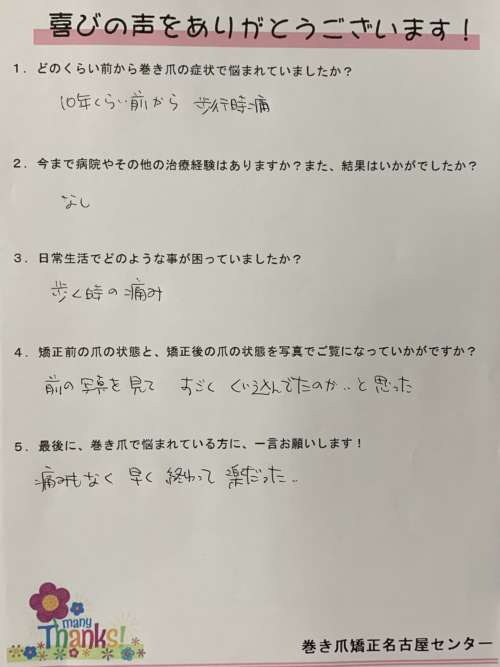 喜びの声をありがとうございます！
１．どのくらい前から巻き爪の症状で悩まれていましたか？
10年くらい前から 歩行時痛
２．今まで病院やその他の治療経験はありますか？また、結果はいかがでしたか？
なし
３．日常生活でどのような事が困っていましたか？
歩く時の痛み
４．矯正前の爪の状態と、矯正後の爪の状態を写真でご覧になっていかがですか？
前の写真を見て すごく くい込んでたのか‥と思った
５．最後に、巻き爪で悩まれている方に、一言お願いします！
痛みもなく 早く 終わって 楽だった‥
many
Thanks!
巻き爪矯正名古屋センター